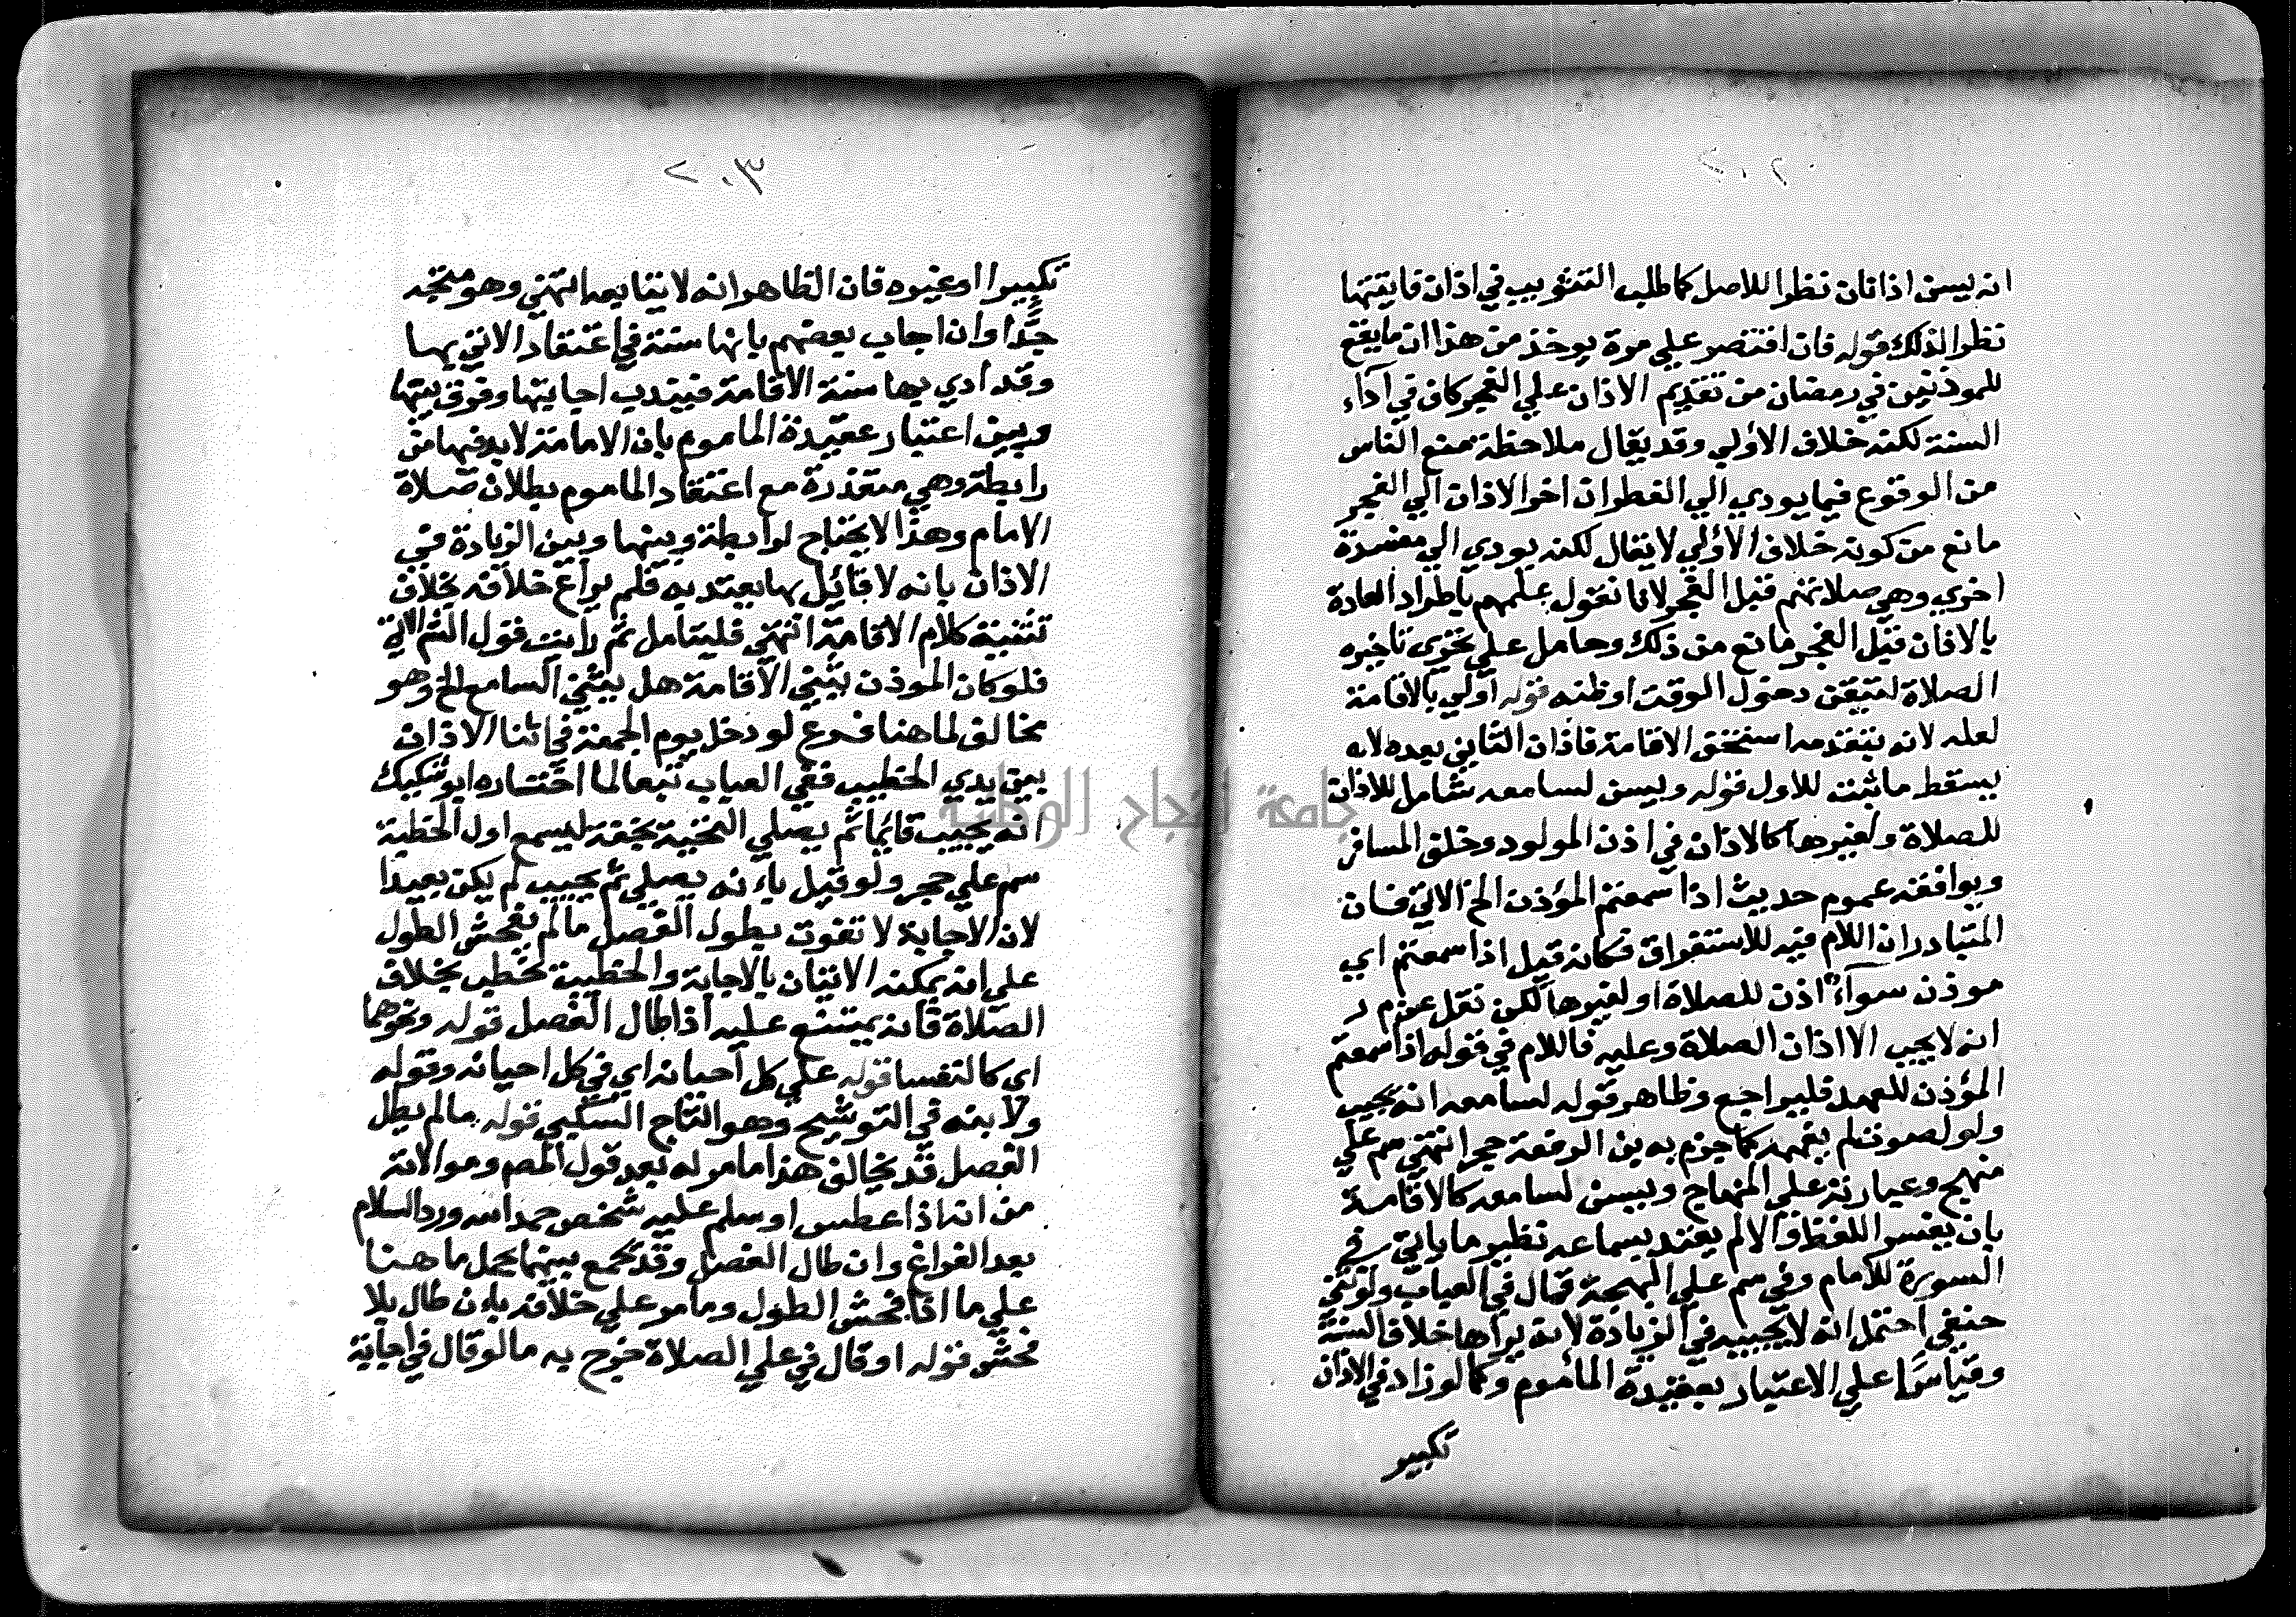 ٢٠٢
انه ليسن اذانان نظرا للاصل كما طلب التثويب في اذان فايتتها
نظرا لذلك قوله فان اقتصر علي مرة يوخذ من هذا ان ما يقع
للموذنين في رمضان من تقديم الاذان علي الفجر كاف في آداء
السنة لكنه خلاف الأولي وقد يقال ملاحظة منع الناس
من الوقوع فيما يودي الي الفطر ان اخر الاذان الي الفجر
مانع من كونه خلاف الأولي لا يقال لكنه يودي الي مفسدة
اخري وهي صلاتهم قبل الفجر لانا نقول علمهم باطراد العادة
بالاذان قبل الفجر مانع من ذلك وحامل علي تحري تاخيره
الصلاة لتيقن دخول الوقت او ظنه قوله أولي بالاقامة
لعله لانه بتقدمه استحق الاقامة فاذان الثاني بعده لا
يسقط ما ثبت للاول قوله ويسن لسامعه شامل للاذان
للصلاة ولغيرها كالاذان في اذن المولود وخلف المسافر
ويوافقه عموم حديث اذا سمعتم المؤذن الخ الاتي فان
المتبادر ان اللام فيه للاستغراق فكانه قيل اذا سمعتم اي
موذن سوآء اذن للصلاة او لغيرها لكن نقل عن م ر
انه لا يجيب الا اذان الصلاة وعليه فاللام في قوله اذا سمعتم
المؤذن للعهد فليراجع وظاهر قوله لسامعه انه يجيب
ولو لصوت لم يفهمه كما جزم به بن الرفعة حجر انتهي سم علي
منهج وعبارته علي المنهاج ويسن لسامعه كالاقامة
بان يفسر اللفظ والا لم يعتد بسماعه نظير ما ياتي في
السورة للامام وفي سم علي البهجة قال في العباب ولو ثني
حنفي احتمل انه لا يجيبه في الزيادة لانه يراها خلاف السنة
وقياسا علي الاعتبار بعقيدة المأموم وكما لو زاد في الاذان
تكبير
٢٠٣
تكبيرا او غيره فان الظاهر انه لا يتابعه انتهي وهو متجه
جدا وان اجاب بعضهم بانها سنة في اعتقاد الاتي بها
وقد أدي بها سنة الاقامة فيندب اجابتها وفرق بينها
وبين اعتبار عقيدة الماموم بان الامامة لا بد فيها من
رابطة وهي متعذرة مع اعتقاد الماموم بطلان صلاة
الامام وهذا لا يحتاج لرابطة وبينها وبين الزيادة في
الاذان بانه لا قائل بها يعتد به فلم يراع خلافه بخلاف
تثنية كلام الاقامة انتهي فليتامل ثم رايت قول الشم الاتي
فلو كان الموذن يثني الاقامة هل يثني السامع الخ وهو
مخالف لما هنا فرع لو دخل يوم الجمعة في اثنا الاذان
بين يدي الخطيب ففي العباب تبعا لما اختاره ابو شكيك
انه يجيب قايما ثم يصلي التحية بخفة ليسمع اول الخطبة
سم علي حجر ولو قيل بأنه يصلي ثم يجيب لم يكن بعيدا
لان الاجابة لا تفوت بطول الفصل ما لم يفحش الطول
علي انه يمكنه الاتيان بالاجابة والخطيب يخطب بخلاف
الصلاة فانه يمتنع عليه اذا طال الفصل قوله ونحوهما
اي كالنفسا قوله علي كل أحيانه اي في كل احيانه وقوله
ولابنه في التوشيح وهو التاج السبكي قوله ما لم يطل
الفصل قد يخالف هذا ما مر له بعد قول المص وموالاته
من انه اذا عطس او سلم عليه شخص حمد الله ورد السلام
بعد الفراغ وان طال الفصل وقد يجمع بينهما بحمل ما هنا
علي ما اذا فحش الطول وما مر علي خلافه بأن طال بلا
فحش قوله او قال في علي الصلاة خرج به ما لو قال في اجابة
جامعة النجاح الوطنية